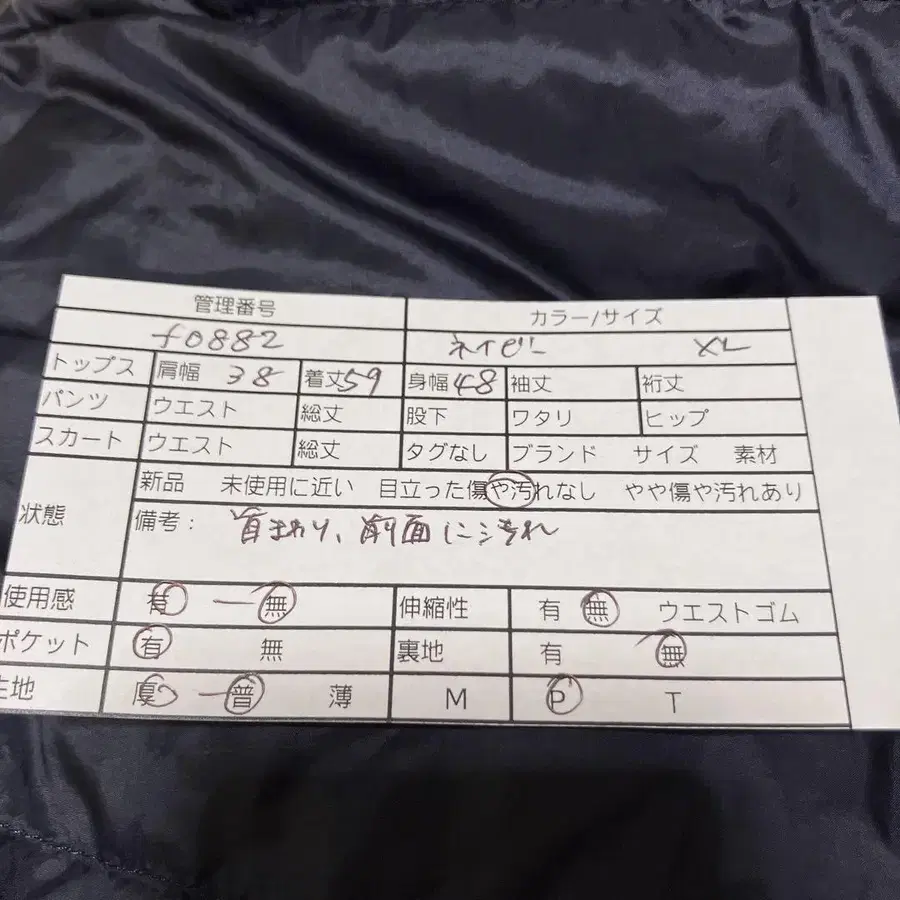 管理番号 カラー/サイズ
f0882 ネイビー XL
トップス 肩幅 38 着丈59 身幅48 袖丈 裄丈
パンツ ウエスト 総丈 股下 ワタリ ヒップ
スカート ウエスト 総丈 タグなし ブランド サイズ 素材
状態 新品 未使用に近い 目立った傷や汚れなし やや傷や汚れあり
備考: 首まわり、前面に汚れ
使用感 有 無 伸縮性 有 無 ウエストゴム
ポケット 有 無 裏地 有 無
生地 厚 普 薄 M P T